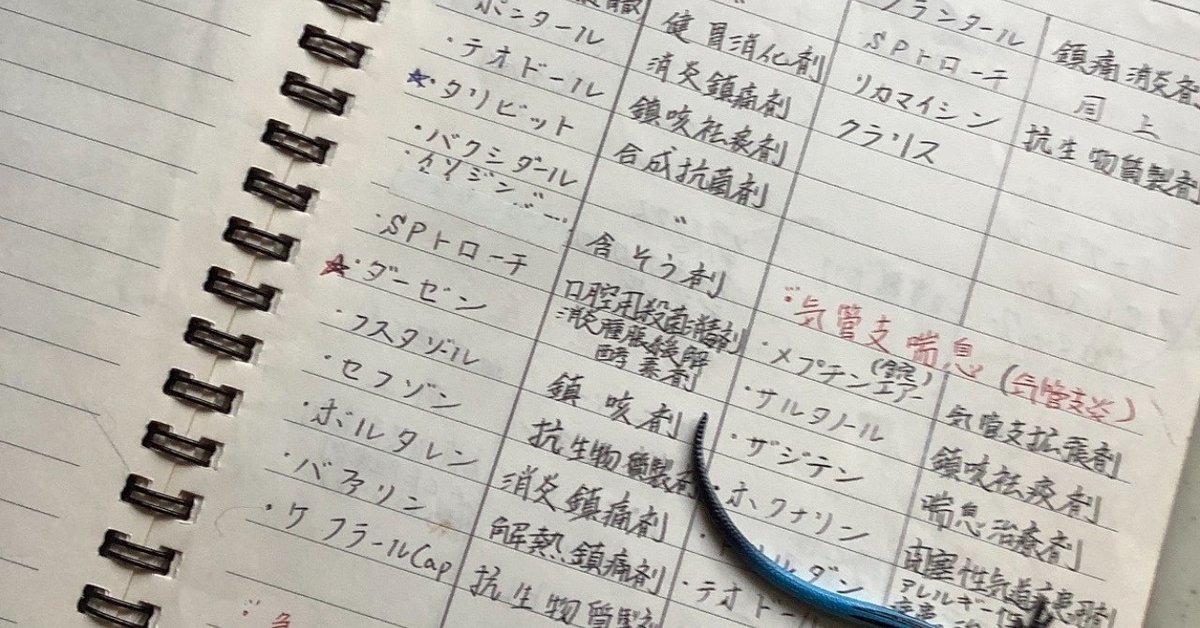 ポンタール 健胃消化剤
・テオドール 消炎鎮痛剤
☆・タリビット 鎮咳祛痰剤
・バクシダール 合成抗菌剤
・イソジン 〃
・SPトローチ 含そう剤
☆・ダーゼン 口腔用殺菌
消炎腫脹緩解
酵素剤
・フスタゾール 鎮咳剤
・セフゾン 抗生物質製剤
・ボルタレン 消炎鎮痛剤
・バファリン 解熱鎮痛剤
・ケフラールCap 抗生物質製剤
ランタール 鎮痛消炎剤
SPトローチ 同上
リカマイシン 抗生物質製剤
クラリス
気管支喘息(気管支炎)
・メプチンエアー 気管支拡張剤
・サルタノール 鎮咳祛痰剤
・ザジテン 喘息治療剤
・ホクナリン 閉塞性気道疾患用剤
ダン アレルギー性
・テオドール 疾患